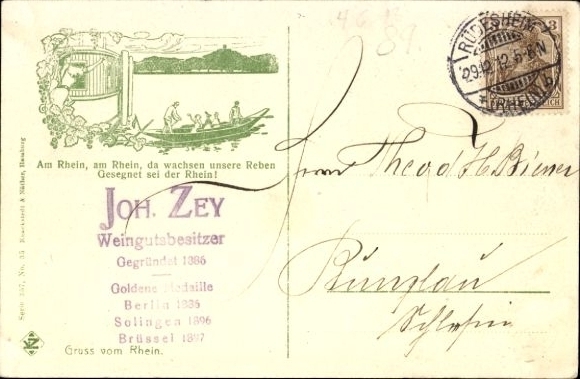 Am Rhein, am Rhein, da wachsen unsere Reben
Gesegnet sei der Rhein!
JOH. ZEY
Weingutsbesitzer
Gegründet 1886
Goldene Medaille
Berlin 1895
Solingen 1896
Brüssel 1897
Gruss vom Rhein.
Serie 257, No. 33 Knackstedt & Näther, Hamburg
RÜDESHEIM
29.12.12.5-6N
(RHEIN) b
3
Herrn Theod. H. Biener
Bunzlau
Schlesien